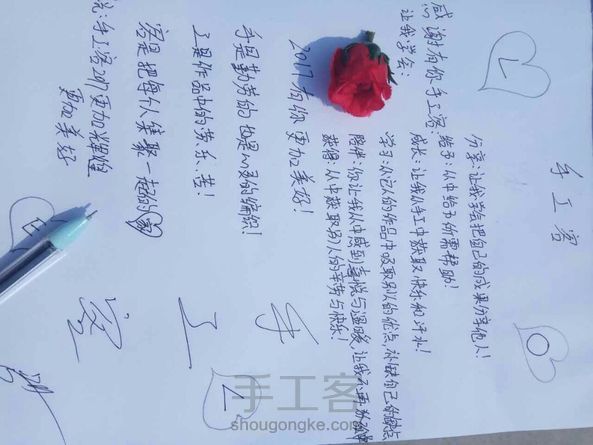 手工客
感谢有你手工客:
让我学会:
分享:让我学会把自己的成果分享他人!
给予:从中给予所需帮助!
成长:让我从手工中获取快乐和汗水!
学习:从他人的作品中吸取别人的优点,补缺自己的缺点
陪伴:你让我从中感到喜悦与温暖,让我不再孤单
获得:从中获取别人的辛劳与快乐!
2017有你更加美好!
手是勤劳的 也是心灵的编织!
工是作品中的劳乐苦!
客是把每个人集聚一起的家
:手工客们更加辉煌
更加美好
手
工
客
L
O
E
手工客
shougongke.com